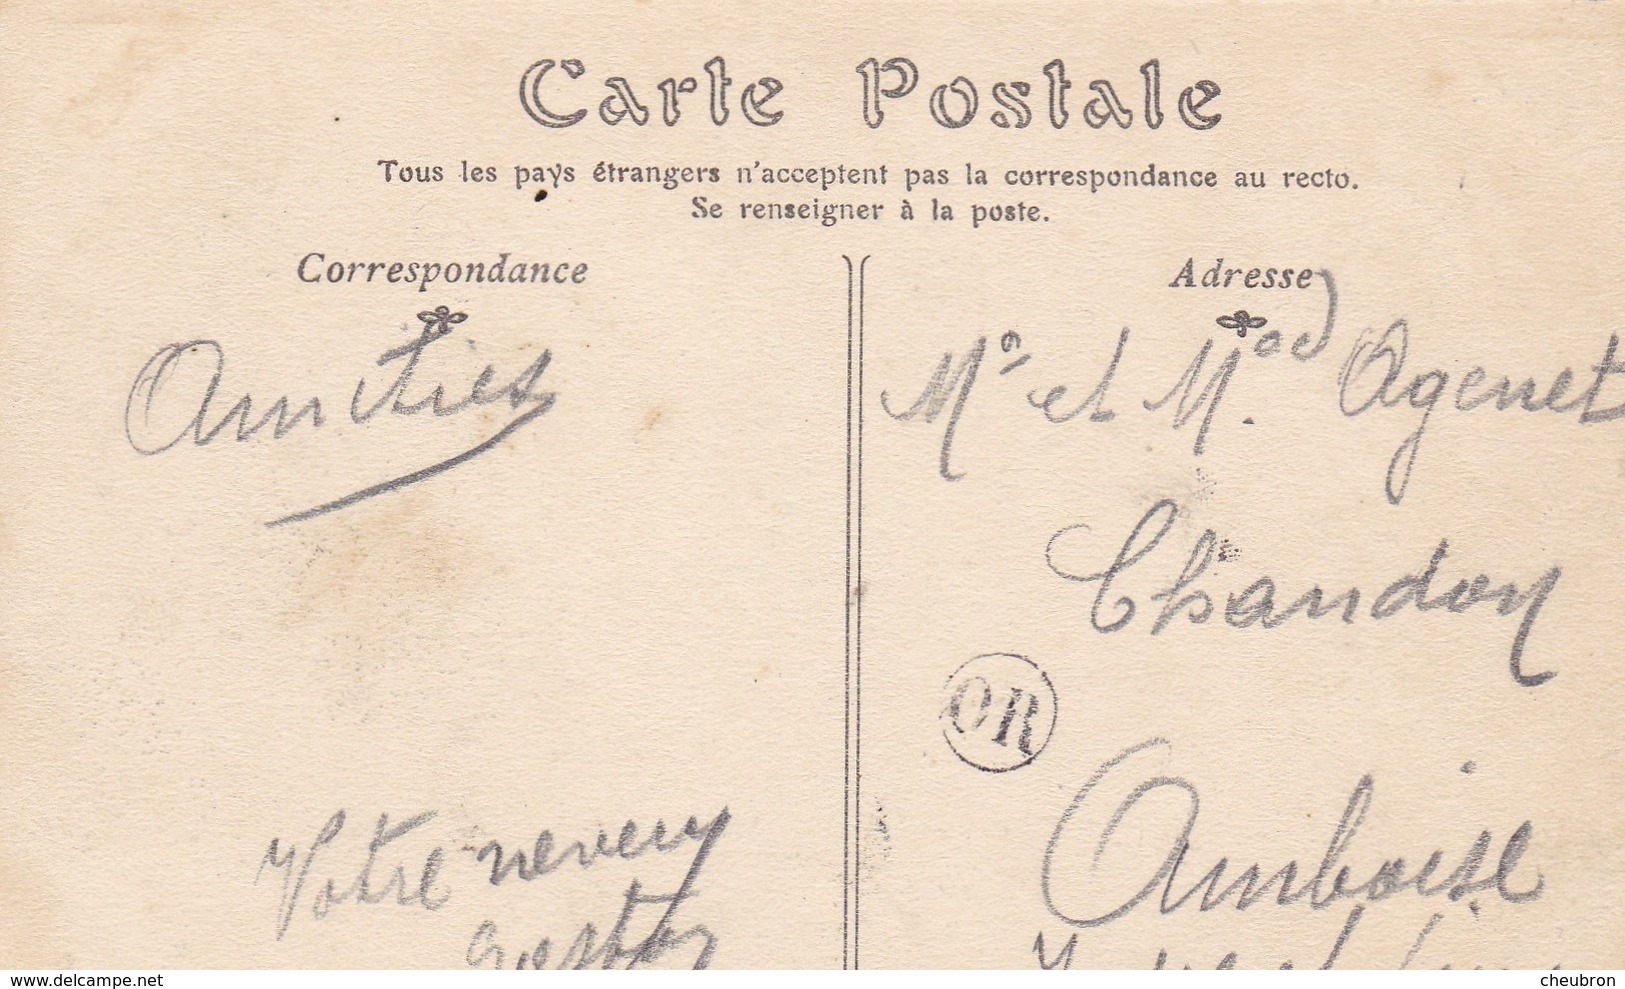 Carte Postale
Tous les pays étrangers n'acceptent pas la correspondance au recto.
Se renseigner à la poste.
Correspondance
Amitiés
Votre neveu
Adresse
Mr et Mad Agenet
Chandon
OR
Amboise
Indre et Loire
www.delcampe.net
cheubron